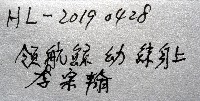 HL-2019 0428
領航鯨 幼 
李宗翰